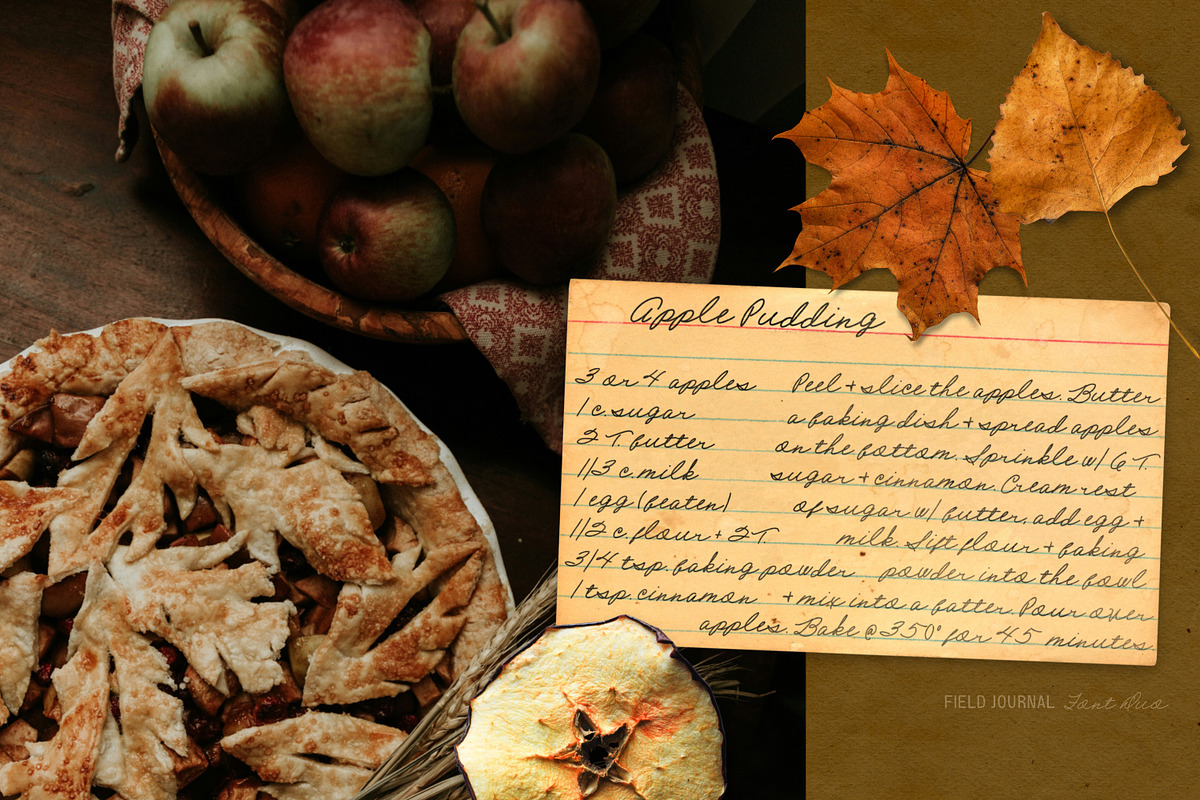 Apple Pudding
3 or 4 apples Peel + slice the apples. Butter
1 c. sugar a baking dish + spread apples
2 T. butter on the bottom. Sprinkle w/ 6 T.
1/3 c. milk sugar + cinnamon. Cream rest
1 egg (beaten) of sugar w/ butter, add egg +
1/2 c. flour + 2 T. milk. Sift flour + baking
3/4 tsp. baking powder powder into the bowl
1 tsp. cinnamon + mix into a batter. Pour over
apples. Bake @ 350° for 45 minutes.
FIELD JOURNAL Font Duo